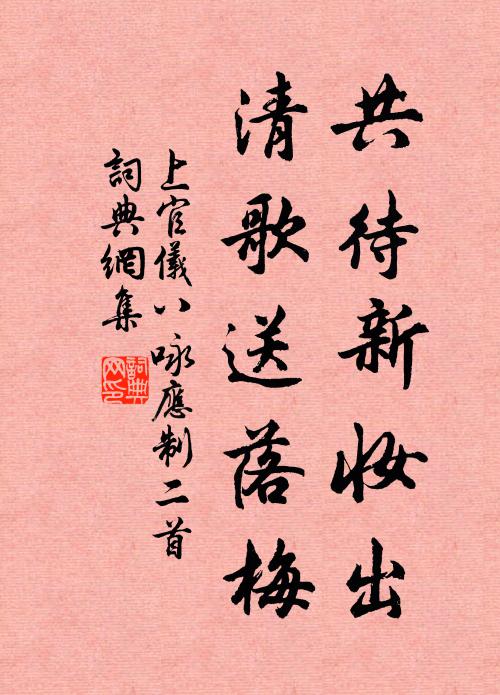 共待新妝出
清歌送落梅
上官儀八咏應制二首
詞典網集
詞典網印